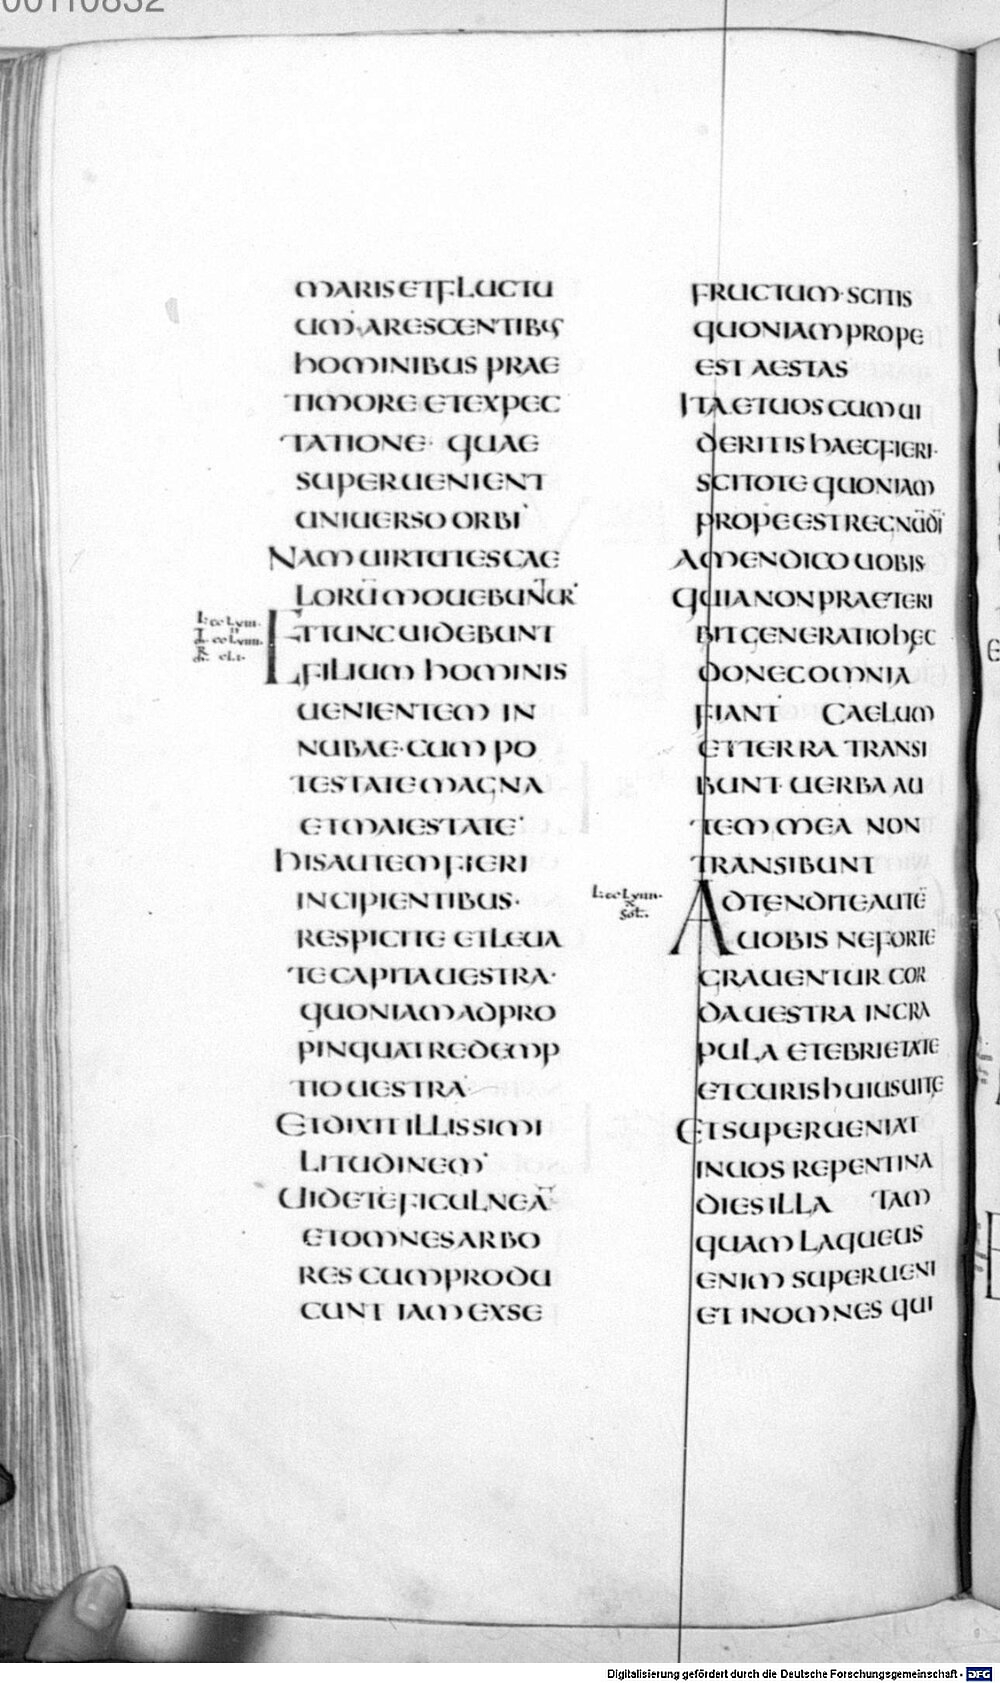 00110832
MARISETFLUCTU
UM·ARESCENTIBUS
HOMINIBUS PRAE
TIMORE ETEXPEC
TATIONE· QUAE
SUPERUENIENT
UNIUERSO ORBI
NAM UIRTUTES CAE
LORŪ MOUEBUNTUR
ETTUNC UIDEBUNT
FILIUM HOMINIS
UENIENTEM IN
NUBAE·CUM PO
TESTATE MAGNA
ET MAIESTATE
HISAUTEM FIERI
INCIPIENTIBUS·
RESPICITE ETLEUA
TE CAPITA UESTRA·
QUONIAM ADPRO
PINQUAT REDEMP
TIO UESTRA
ETDIXIT ILLIS SIMI
LITUDINEM
UIDETE FICULNEĀ
ETOMNES ARBO
RES CUM PRODU
CUNT IAM EXSE
FRUCTUM·SCITIS
QUONIAM PROPE
EST AESTAS
ITA ETUOS CUM UI
DERITIS HAEC FIERI·
SCITOTE QUONIAM
PROPE EST REGNŪ DĪ
AMEN DICO UOBIS
QUIA NON PRAETERI
BIT GENERATIO HEC
DONEC OMNIA
FIANT CAELUM
ET TERRA TRANSI
BUNT· UERBA AU
TEM MEA NON
TRANSIBUNT
ADTENDITE AUTĒ
UOBIS NE FORTE
GRAUENTUR COR
DA UESTRA IN CRA
PULA ET EBRIETATE
ET CURIS HUIUS UITE
ET SUPERUENIAT
IN UOS REPENTINA
DIES ILLA TAM
QUAM LAQUEUS
ENIM SUPERUENI
ET IN OMNES QUI
Digitalisierung gefördert durch die Deutsche Forschungsgemeinschaft - DFG